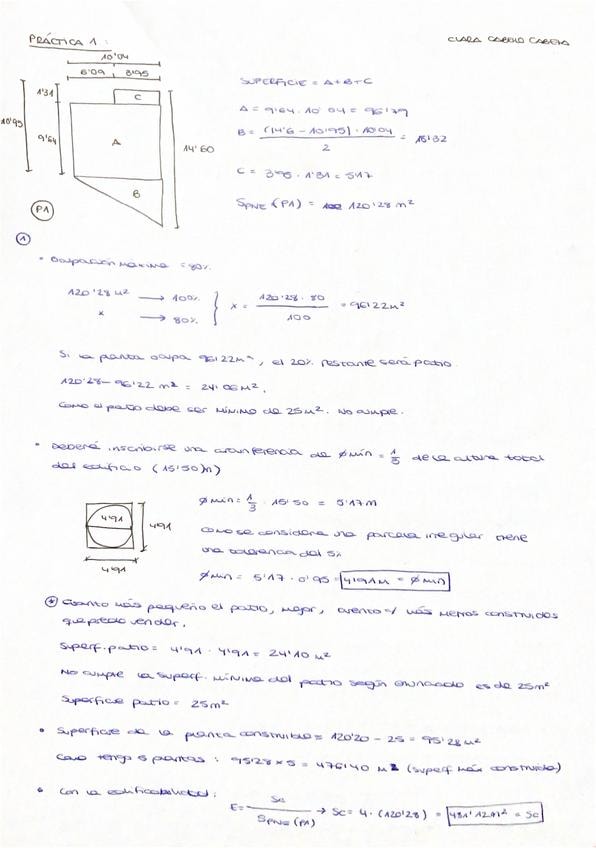 PRÁCTICA 1:
CLARA CABELLO CABEZA
10'04
6'09 3'95
1'31
C
10'95
9'64
A
14'60
B
P1
SUPERFICIE = A+B+C
A = 9'64 · 10'04 = 96'79
B = (14'6 - 10'95) · 10'04 / 2 = 18'32
C = 3'95 · 1'31 = 5'17
SPNE (P1) = 120'28 m²
1
• Ocupación máxima = 80%
120'28 m² → 100%
x → 80%
x = 120'28 · 80 / 100 = 96'22 m²
Si la planta ocupa 96'22 m², el 20% restante será patio.
120'28 - 96'22 m² = 24'06 m².
Como el patio debe ser mínimo de 25 m². No cumple.
• Deberá inscribirse una circunferencia de Ø mín = 1/3 de la altura total
del edificio (15'50 m)
4'91
4'91
4'91
Ø mín = 1/3 · 15'50 = 5'17 m
Como se considera una parcela irregular tiene
una tolerancia del 5%
Ø mín = 5'17 · 0'95 = 4'91 m = Ø mín
* Cuanto más pequeño el patio, mejor, cuento c/ más metros construidos
que puedo vender.
Superf. patio = 4'91 · 4'91 = 24'10 m²
No cumple la superf. mínima del patio según enunciado es de 25 m²
Superficie patio = 25 m²
• Superficie de la planta construida = 120'20 - 25 = 95'28 m²
Como tengo 5 plantas: 95'28 × 5 = 476'40 m² (superf máx construida)
• Con la edificabilidad:
E = Sc / SPNE (P1) → Sc = 4 · (120'28) = 481'12 m² = Sc